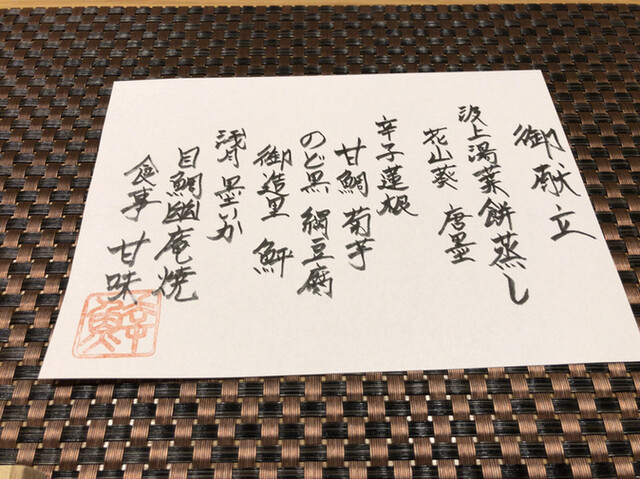 御献立
汲上湯葉餅蒸し
花山葵 唐墨
辛子蓮根
甘鯛 菊芋
のど黒 絹豆腐
御造里 鮃
浅月 墨いか
目鯛幽庵焼
食事 甘味